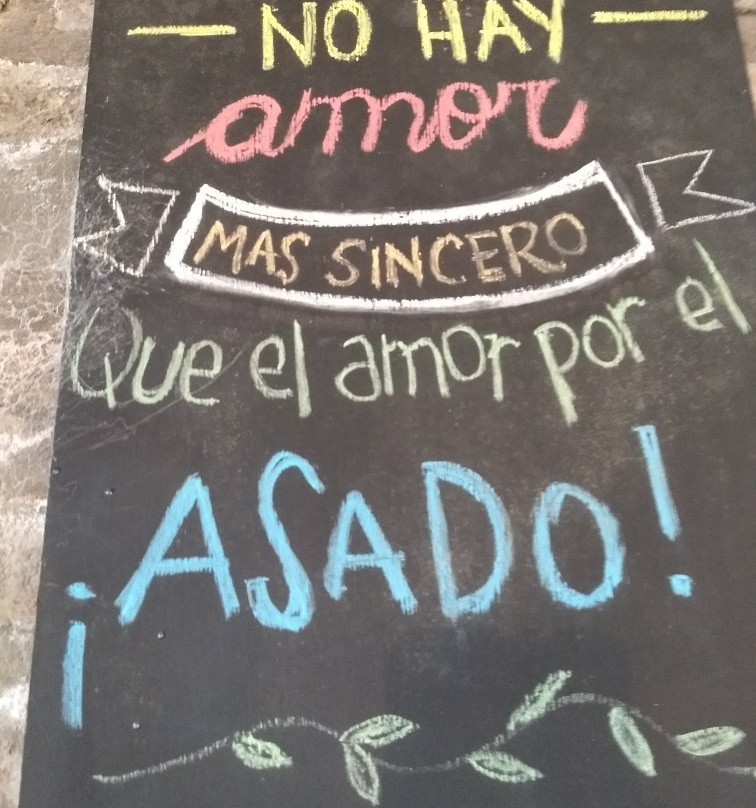 NO HAY
amor
MAS SINCERO
Que el amor por el
¡ASADO!